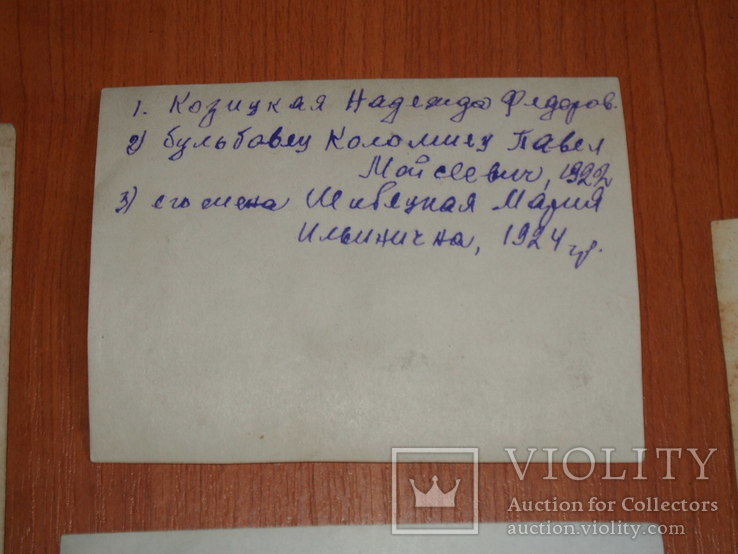 1. Козицкая Надежда Федоров.
2) бульбовец Коломиец Павел
Мойсеевич, 1922
3) его жена Шивецкая Мария
Ильинична, 1924 гр.
VIOLITY
Auction for Collectors
auction.violity.com